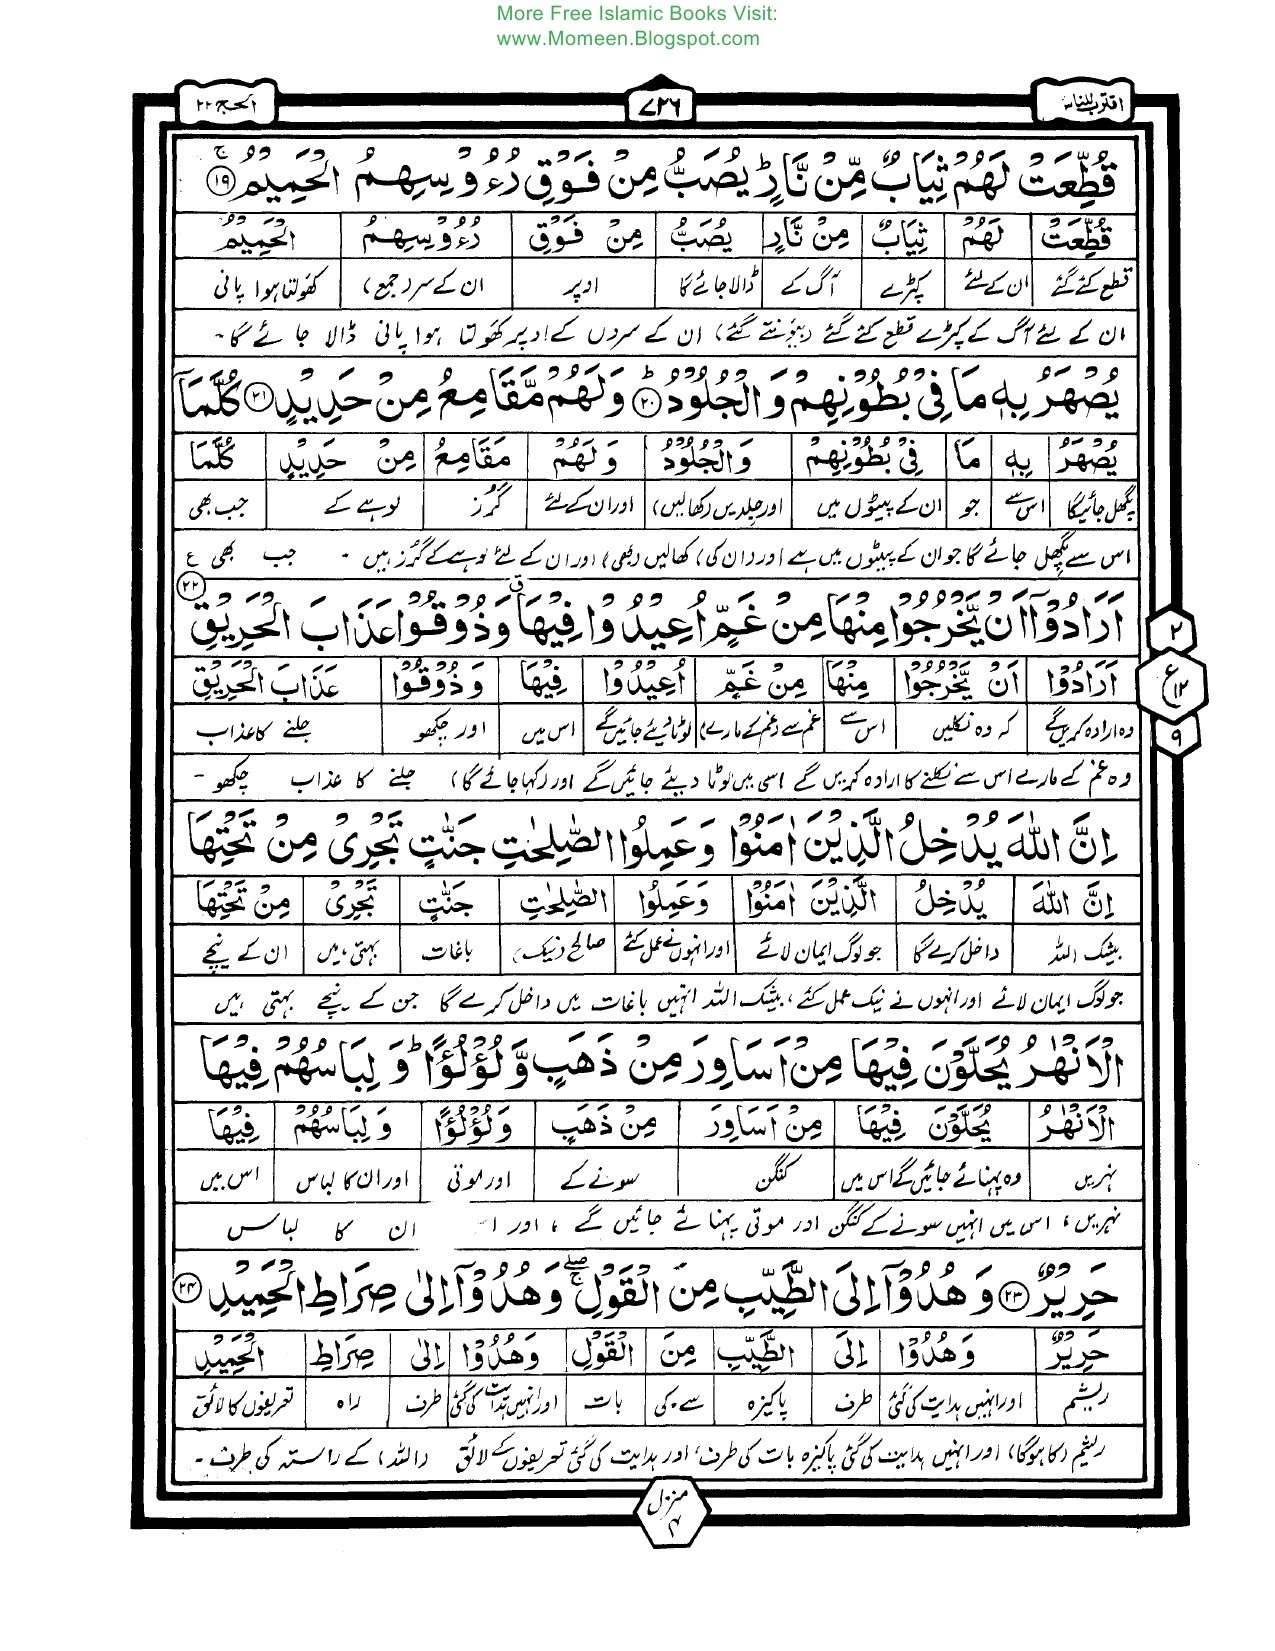 More Free Islamic Books Visit:
www.Momeen.Blogspot.com
اقترب للناس ۱۷
۷۲۶
الحج ۲۲
قُطِّعَتْ لَهُمْ ثِيَابٌ مِّنْ نَّارٍ ؕ يُصَبُّ مِنْ فَوْقِ رُءُوْسِهِمُ الْحَمِيْمُ ۚ ﴿۱۹﴾
قُطِّعَتْ لَهُمْ ثِيَابٌ مِنْ نَّارٍ يُصَبُّ مِنْ فَوْقِ رُءُوْسِهِمُ الْحَمِيْمُ
قطع کئے گئے ان کے لئے کپڑے آگ کے ڈالا جائے گا اوپر ان کے سر (جمع) کھولتا ہوا پانی
ان کے لئے آگ کے کپڑے قطع کئے گئے (بیونتے گئے) ان کے سروں کے اوپر کھولتا ہوا پانی ڈالا جائے گا۔
يُصْهَرُ بِهٖ مَا فِيْ بُطُوْنِهِمْ وَالْجُلُوْدُ ؕ ﴿۲۰﴾ وَلَهُمْ مَّقَامِعُ مِنْ حَدِيْدٍ ﴿۲۱﴾ كُلَّمَاۤ
يُصْهَرُ بِهٖ مَا فِيْ بُطُوْنِهِمْ وَالْجُلُوْدُ وَلَهُمْ مَقَامِعُ مِنْ حَدِيْدٍ كُلَّمَا
پگھل جائیگا اس سے جو ان کے پیٹوں میں اور جلدیں (کھالیں) اور ان کے لئے گرز لوہے کے جب بھی
اس سے پگھل جائے گا جو ان کے پیٹوں میں ہے اور (ان کی) کھالیں (بھی) اور ان کے لئے لوہے کے گرز ہیں ۔ جب بھی ع
اَرَادُوْۤا اَنْ يَّخْرُجُوْا مِنْهَا مِنْ غَمٍّ اُعِيْدُوْا فِيْهَا ۗ وَذُوْقُوْا عَذَابَ الْحَرِيْقِ ﴿۲۲﴾
اَرَادُوْا اَنْ يَّخْرُجُوْا مِنْهَا مِنْ غَمٍّ اُعِيْدُوْا فِيْهَا وَذُوْقُوْا عَذَابَ الْحَرِيْقِ
وہ ارادہ کریں گے کہ وہ نکلیں اس سے غم سے (غم کے مارے) لوٹا دیئے جائیں گے اس میں اور چکھو جلنے کا عذاب
وہ غم کے مارے اس سے نکلنے کا ارادہ کریں گے اسی میں لوٹا دیئے جائیں گے اور (کہا جائے گا) جلنے کا عذاب چکھو ۔
۲
ع ۱۲
۹
اِنَّ اللّٰهَ يُدْخِلُ الَّذِيْنَ اٰمَنُوْا وَعَمِلُوا الصّٰلِحٰتِ جَنّٰتٍ تَجْرِيْ مِنْ تَحْتِهَا
اِنَّ اللّٰهَ يُدْخِلُ الَّذِيْنَ اٰمَنُوْا وَعَمِلُوا الصّٰلِحٰتِ جَنّٰتٍ تَجْرِيْ مِنْ تَحْتِهَا
بیشک اللہ داخل کرے گا جو لوگ ایمان لائے اور انہوں نے عمل کئے صالح (نیک) باغات بہتی ہیں ان کے نیچے
جو لوگ ایمان لائے اور انہوں نے نیک عمل کئے، بیشک اللہ انہیں باغات میں داخل کرے گا جن کے نیچے بہتی ہیں
الْاَنْهٰرُ يُحَلَّوْنَ فِيْهَا مِنْ اَسَاوِرَ مِنْ ذَهَبٍ وَّلُؤْلُؤًا ؕ وَلِبَاسُهُمْ فِيْهَا
الْاَنْهٰرُ يُحَلَّوْنَ فِيْهَا مِنْ اَسَاوِرَ مِنْ ذَهَبٍ وَلُؤْلُؤًا وَلِبَاسُهُمْ فِيْهَا
نہریں وہ پہنائے جائیں گے اس میں کنگن سونے کے اور موتی اور ان کا لباس اس میں
نہریں، اس میں انہیں سونے کے کنگن اور موتی پہنائے جائیں گے، اور ان کا لباس
حَرِيْرٌ ﴿۲۳﴾ وَهُدُوْۤا اِلَى الطَّيِّبِ مِنَ الْقَوْلِ ۖۚ وَهُدُوْۤا اِلٰى صِرَاطِ الْحَمِيْدِ ﴿۲۴﴾
حَرِيْرٌ وَهُدُوْا اِلَى الطَّيِّبِ مِنَ الْقَوْلِ وَهُدُوْا اِلٰى صِرَاطِ الْحَمِيْدِ
ریشم اور انہیں ہدایت کی گئی طرف پاکیزہ سے ۔ کی بات اور انہیں ہدایت کی گئی طرف راہ تعریفوں کا لائق
ریشم (کا ہوگا) اور انہیں ہدایت کی گئی پاکیزہ بات کی طرف، اور ہدایت کی گئی تعریفوں کے لائق (اللہ) کے راستہ کی طرف ۔
منزل ۴